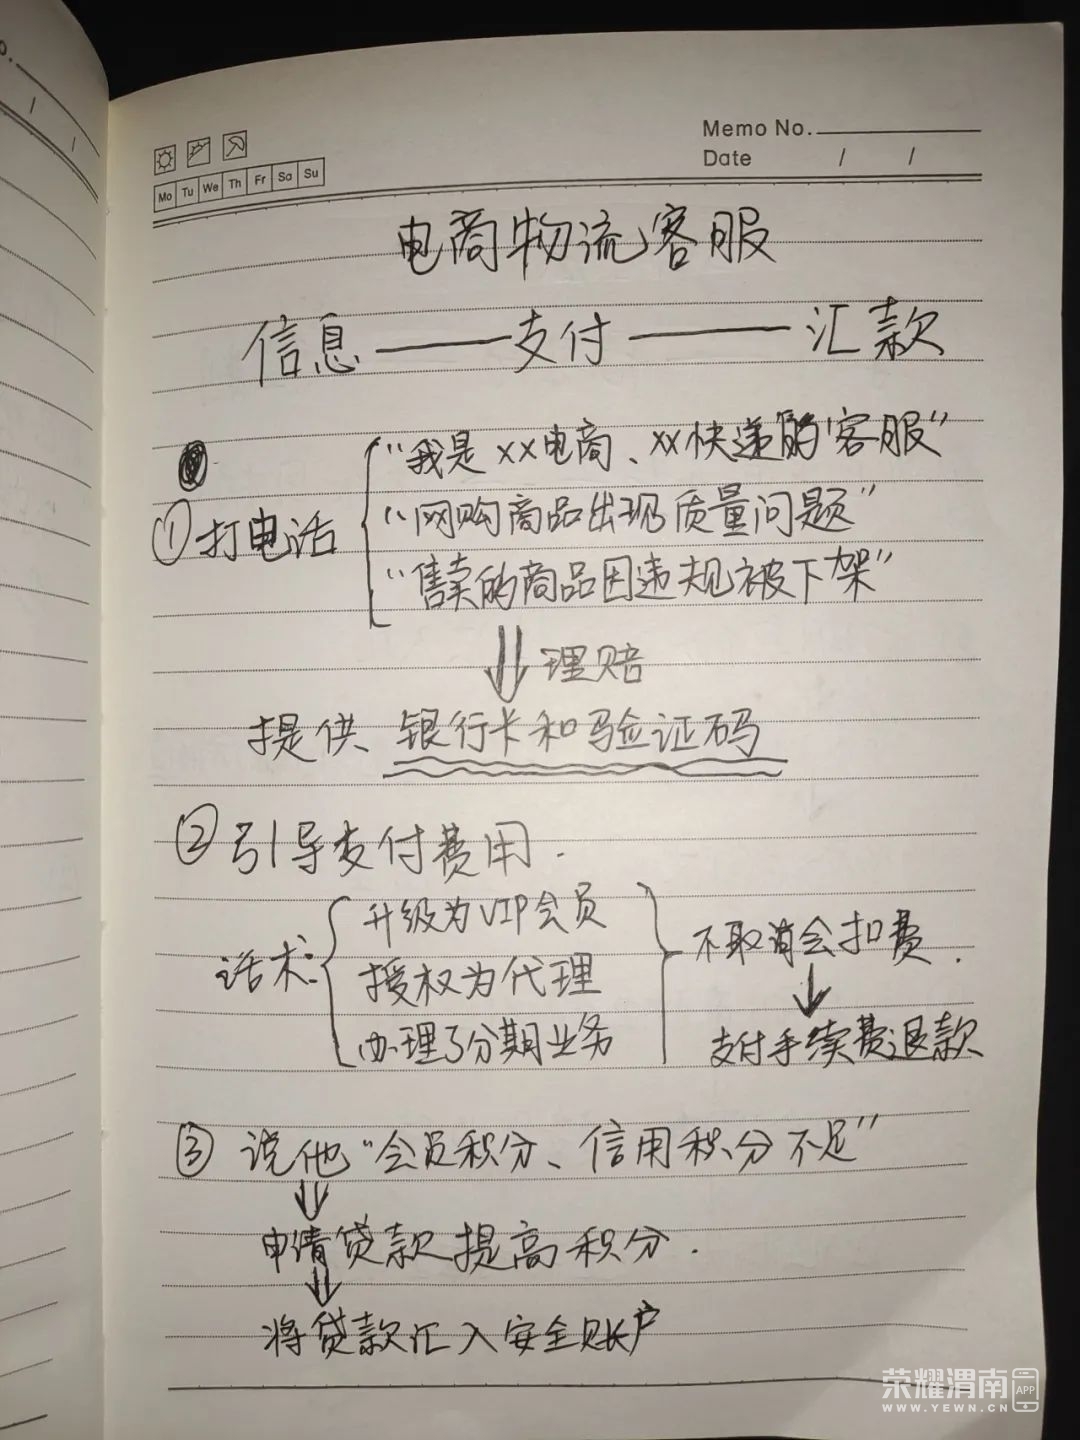 Memo No.
Date / /
Mo Tu We Th Fr Sa Su
电商物流客服
信息——支付——汇款
①打电话
“我是xx电商、xx快递的‘客服”
“网购商品出现质量问题”
“售卖的商品因违规被下架”
理赔
提供、银行卡和验证码
②引导支付费用.
话术:
升级为VIP会员
授权为代理
办理了分期业务
不取消会扣费.
支付手续费退款
③说他“会员积分、信用积分不足”
申请贷款提高积分.
将贷款汇入安全账户
荣耀渭南 APP
WWW.YEWN.CN